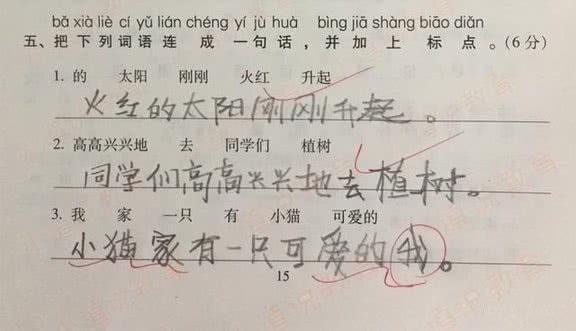 bǎ xià liè cí yǔ lián chéng yí jù huà bìng jiā shàng biāo diǎn
五、把下列词语连成一句话,并加上标点。(6分)
1. 的 太阳 刚刚 火红 升起
火红的太阳刚刚升起。
2. 高高兴兴地 去 同学们 植树
同学们高高兴兴地去植树。
3. 我 家 一只 有 小猫 可爱的
小猫家有一只可爱的我。
15